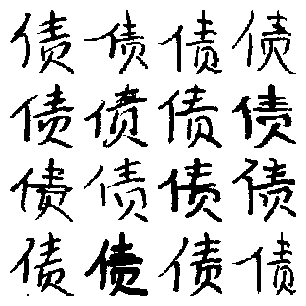 债债债债
债债债债
债债债债
债债债债